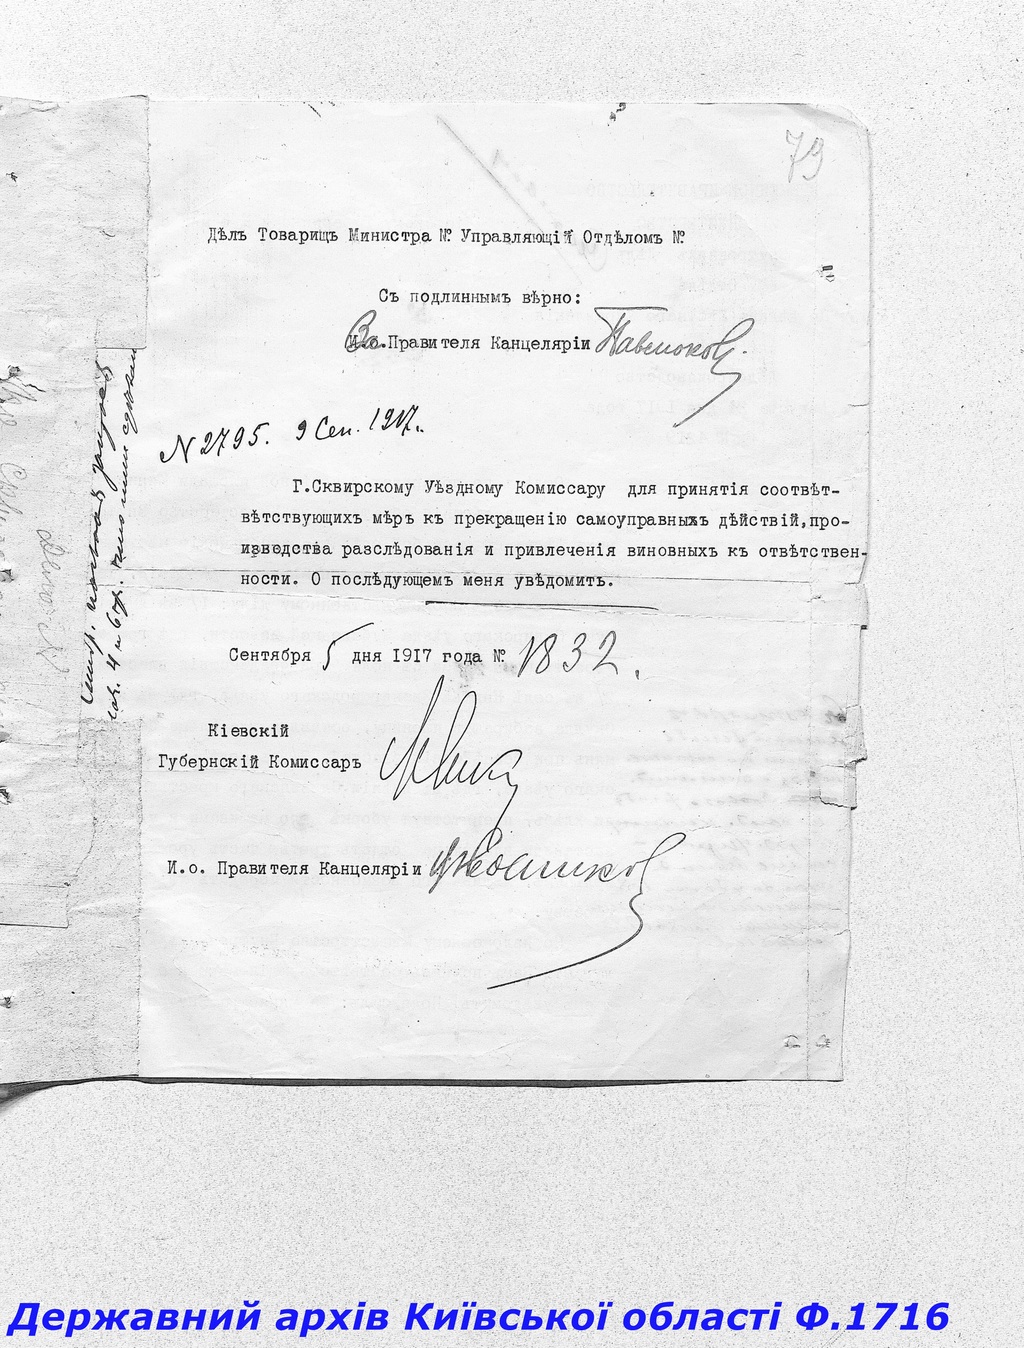 79
Дѣлъ Товарищъ Министра № Управляющій Отдѣломъ №
Съ подлиннымъ вѣрно:
За Правителя Канцеляріи
N 2795. 9 Сен. 1917.
Г.Сквирскому Уѣздному Комиссару для принятія соотвѣт-
вѣтствующихъ мѣръ къ прекращенію самоуправныхъ дѣйствій,про-
изводства разслѣдованія и привлеченія виновныхъ къ отвѣтствен-
ности. О послѣдующемъ меня увѣдомить.
Сентября 5 дня 1917 года № 1832.
Кіевскій
Губернскій Комиссаръ
И.о. Правителя Канцеляріи
Державний архів Київської області Ф.1716